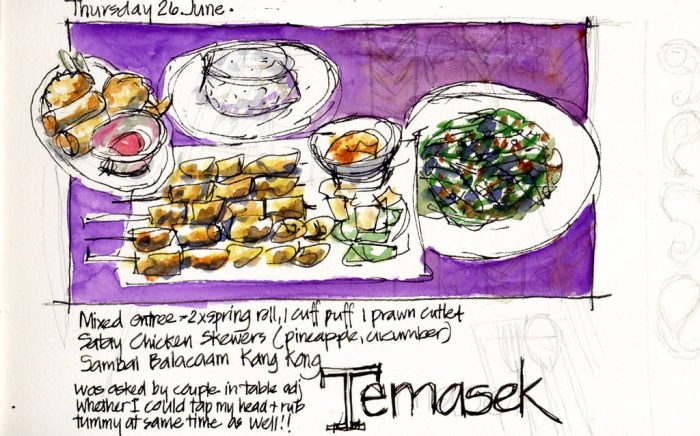 Thursday 26 June.
Mixed entree = 2x spring roll, 1 cuff puff 1 prawn cutlet
Satay Chicken Skewers (pineapple, cucumber)
Sambal Balacaam Kang Kong
was asked by couple in table adj
whether I could tap my head + rub
tummy at same time as well!!
Temasek